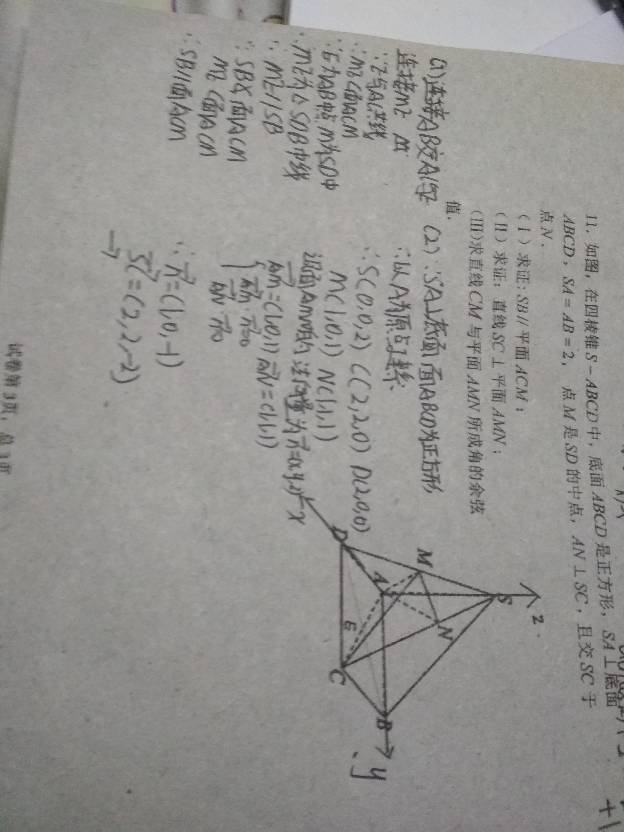 11. 如图, 在四棱锥 S－ABCD 中, 底面 ABCD 是正方形, SA⊥底面
ABCD, SA＝AB＝2, 点 M 是 SD 的中点, AN⊥SC, 且交 SC 于
点 N.
(Ⅰ) 求证: SB∥平面 ACM;
(Ⅱ) 求证: 直线 SC⊥平面 AMN;
(Ⅲ)求直线 CM 与平面 AMN 所成角的余弦
值.
(1)连接AB交AC于E
连接ME
∵E与AC共线
∴ME⊂面ACM
∵E为AB中点 M为SD中
∴ME为△SDB中线
∴ME//SB
∵SB⊄面ACM
ME⊂面ACM
∴SB//面ACM
(2)∵SA⊥底面 面ABCD为正方形
∴以A为原点建系
∴S(0,0,2) C(2,2,0) D(2,0,0)
M(1,0,1) N(1,1,1)
设面AMN的法向量为n=(x,y,z)
AM=(1,0,1) AN=(1,1,1)
AM·n=0
AN·n=0
∴n=(1,0,-1)
SC=(2,2,-2)
z
S
M
N
D
A
E
C
B
x
y
试卷第 3 页, 总 3 页